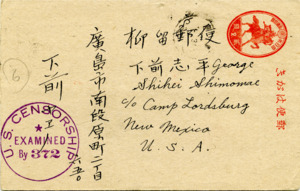 柳留郵便
下前志平 George
Shihei Shimomae
c/o Camp Lordsburg
New Mexico
U. S. A.
廣島市南段原町二丁目
下前
U.S. CENSORSHIP
EXAMINED
By 372